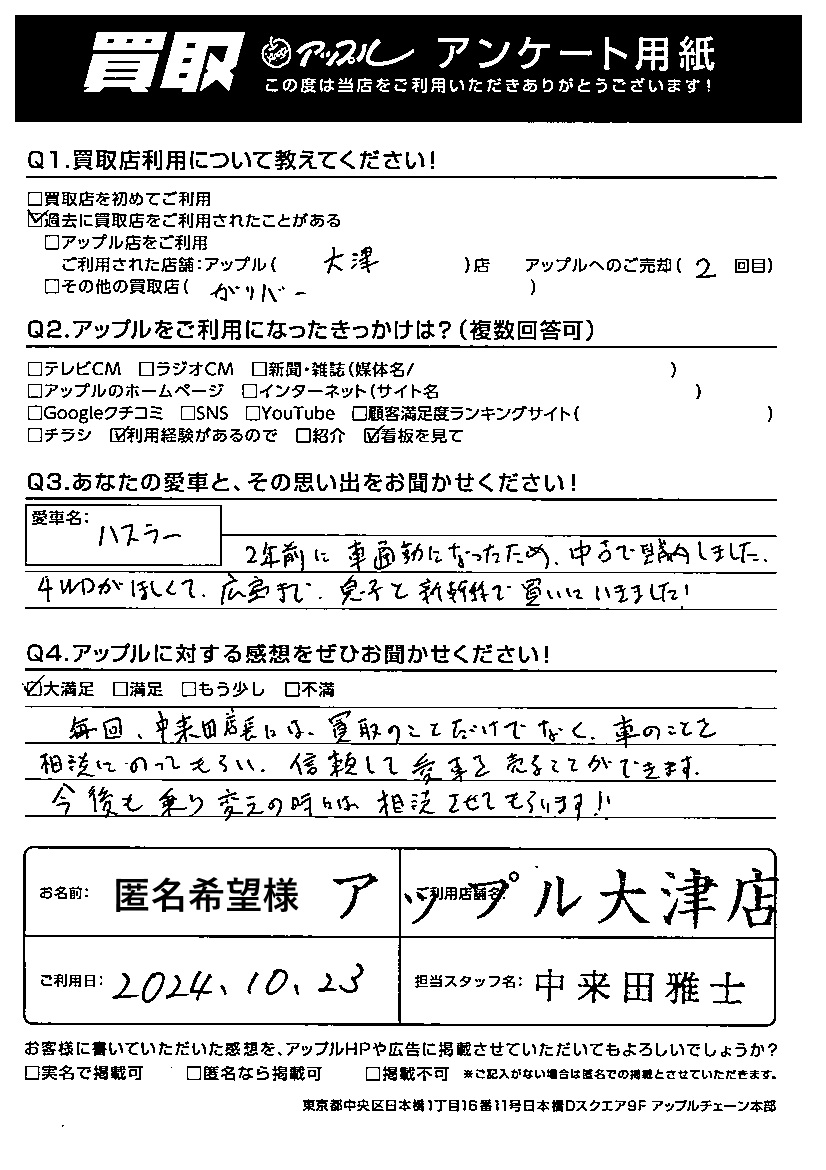 買取 アップル アンケート用紙
この度は当店をご利用いただきありがとうございます!
Q1.買取店利用について教えてください!
□買取店を初めてご利用
☑過去に買取店をご利用されたことがある
□アップル店をご利用
ご利用された店舗:アップル( 大津 )店 アップルへのご売却( 2 回目)
□その他の買取店( ガリバー )
Q2.アップルをご利用になったきっかけは?(複数回答可)
□テレビCM □ラジオCM □新聞・雑誌(媒体名/ )
□アップルのホームページ □インターネット(サイト名 )
□Googleクチコミ □SNS □YouTube □顧客満足度ランキングサイト( )
□チラシ ☑利用経験があるので □紹介 ☑看板を見て
Q3.あなたの愛車と、その思い出をお聞かせください!
愛車名: ハスラー
2年前に車通勤になったため、中古で購入しました、
4WDがほしくて、広島まで、息子と新幹線で買いにいきました!
Q4.アップルに対する感想をぜひお聞かせください!
☑大満足 □満足 □もう少し □不満
毎回、中来田店長には、買取のことだけでなく、車のことを
相談にのってもらい、信頼して愛車を売ることができます。
今後も乗り変えの時には相談させてもらいます!!
お名前: 匿名希望様 ご利用店舗名: アップル大津店
ご利用日: 2024、10、23 担当スタッフ名: 中来田雅士
お客様に書いていただいた感想を、アップルHPや広告に掲載させていただいてもよろしいでしょうか?
□実名で掲載可 □匿名なら掲載可 □掲載不可 ※ご記入がない場合は匿名での掲載とさせていただきます。
東京都中央区日本橋1丁目16番11号日本橋Dスクエア9F アップルチェーン本部